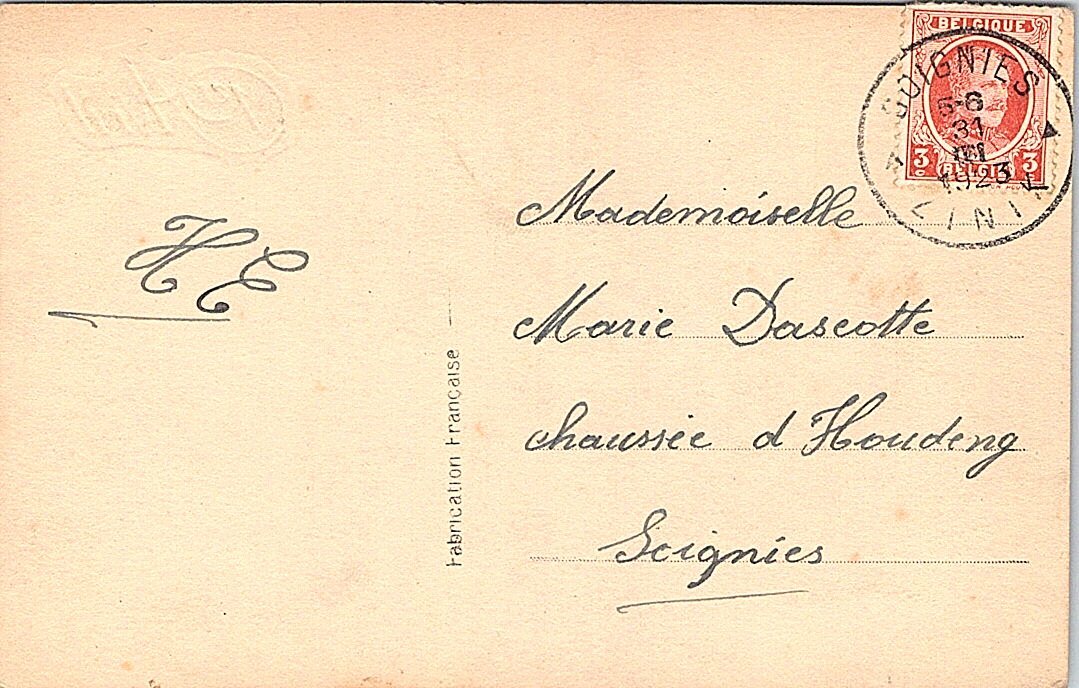 H E
Mademoiselle
Marie Dascotte
chaussée d Houdeng
Soignies
Fabrication Française
BELGIQUE
3 c 3 c
BELGIË
SOIGNIES
5-6
31
III
1923
ZINIK